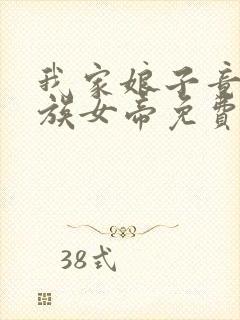 我家娘子竟
族女帝免費
38式